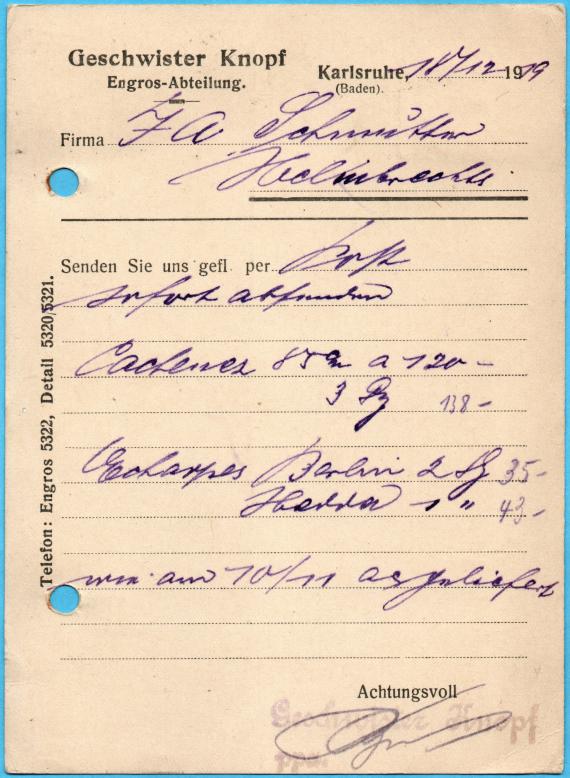 Geschwister Knopf
Engros-Abteilung.
Karlsruhe, 18/12 1919
(Baden).
Firma F A Schmutter
Helmbrechts
Senden Sie uns gefl. per Post
sofort absenden
Cachenez 85 cm a 120-
3 Dz 138-
Echarpes Berlin 2 Dz 35-
Hedda 1 " 43-
wie am 10/11 ausgeliefert
Telefon: Engros 5322, Detail 5320/5321.
Achtungsvoll
Geschwister Knopf
ppa.